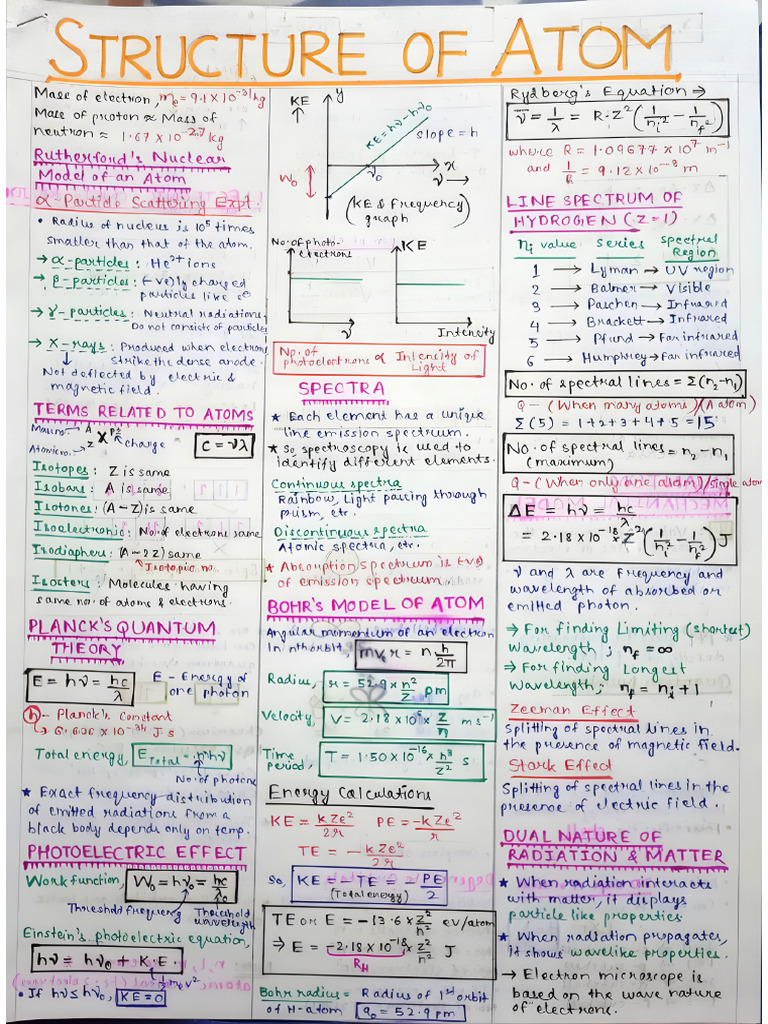 STRUCTURE OF ATOM
Mass of electron, me = 9.1 × 10⁻³¹ kg
Mass of proton ≈ Mass of
neutron ≈ 1.67 × 10⁻²⁷ kg
Rutherford's Nuclear
Model of an Atom
α-Particle Scattering Expt.
• Radius of nucleus is 10⁵ times
smaller than that of the atom.
→ α-particles : He²⁺ ions
→ β-particles : (-ve)ly charged
particles like e⊖
→ γ-particles : Neutral radiations
Do not consists of particles
→ X-rays : Produced when electrons
strike the dense anode.
Not deflected by electric &
magnetic field.
TERMS RELATED TO ATOMS
Mass no. A
X
Atomic no. Z
charge
C = νλ
Isotopes : Z is same
Isobars : A is same
Isotones : (A-Z) is same
Isoelectronic : No. of electrons same
Isodiaphers : (A-2Z) same
Isotopic no.
Isosters : Molecules having
same no. of atoms & electrons.
PLANCK'S QUANTUM
THEORY
E = hν = hc/λ
E - Energy of
one photon
h - Planck's Constant
→ 6.606 × 10⁻³⁴ J s
Total energy, E Total = nhν
No. of photons
★ Exact frequency distribution
of emitted radiations from a
black body depends only on temp.
PHOTOELECTRIC EFFECT
Work function, W₀ = hν₀ = hc/λ₀
Threshold frequency Threshold
wavelength
Einstein's photoelectric equation,
hν = hν₀ + K.E.
½mv²
• If hν ≤ hν₀, KE = 0
KE
y
KE = hν - hν₀
slope = h
W₀
ν₀
x
ν →
(KE & Frequency
graph)
No. of photo-
electrons
KE
ν
Intensity
No. of
photoelectrons ∝ Intensity of
Light
SPECTRA
★ Each element has a unique
line emission spectrum.
★ So spectroscopy is used to
identify different elements.
Continuous spectra
Rainbow, Light passing through
prism, etc.
Discontinuous spectra
Atomic spectra, etc.
★ Absorption spectrum is (-ve)
of emission spectrum.
BOHR'S MODEL OF ATOM
Angular momentum of an electron
in nth orbit, mver = n h/2π
Radius, r = 52.9 × n²/Z pm
Velocity, V = 2.18 × 10⁶ × Z/n m s⁻¹
Time
period, T = 1.50 × 10⁻¹⁶ × n³/Z² s
Energy Calculations
KE = kZe²/2r PE = -kZe²/r
TE = -kZe²/2r
So, KE = -TE = -PE/2
(Total energy)
TE or E = -13.6 × Z²/n² eV/atom
⇒ E = -2.18 × 10⁻¹⁸ × Z²/n² J
RH
Bohr radius = Radius of 1st orbit
of H-atom a₀ = 52.9 pm
Rydberg's Equation →
ν̅ = 1/λ = R·Z² (1/ni² - 1/nf²)
where R = 1.09677 × 10⁷ m⁻¹
and 1/R = 9.12 × 10⁻⁸ m
LINE SPECTRUM OF
HYDROGEN (Z=1)
ni value series Spectral
Region
1 → Lyman → UV region
2 → Balmer → Visible
3 → Paschen → Infrared
4 → Brackett → Infrared
5 → Pfund → Far infrared
6 → Humphrey → Far infrared
No. of spectral lines = Σ(n₂-n₁)
Q - (When many atoms)/(A atom)
Σ(5) = 1+2+3+4+5 = 15
No. of spectral lines = n₂ - n₁
(maximum)
Q - (When only one atom)/single atom
ΔE = hν = hc/λ
= 2.18 × 10⁻¹⁸ Z² (1/ni² - 1/nf²) J
ν and λ are frequency and
wavelength of absorbed or
emitted photon.
⇒ For finding Limiting (shortest)
Wavelength ; nf = ∞
⇒ For finding Longest
Wavelength ; nf = ni + 1
Zeeman Effect
Splitting of spectral lines in
the presence of magnetic field.
Stark Effect
Splitting of spectral lines in the
presence of electric field.
DUAL NATURE OF
RADIATION & MATTER
★ When radiation interacts
with matter, it displays
particle like properties
★ When radiation propagates,
it shows wavelike properties.
→ Electron microscope is
based on the wave nature
of electrons.